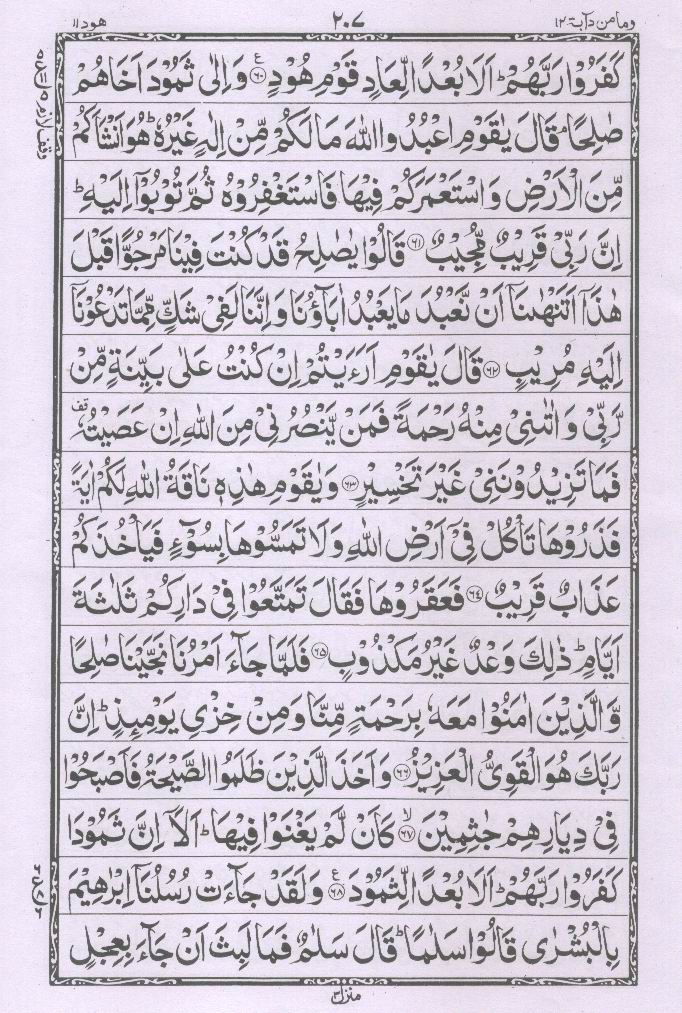 وما من دآبة ١٢
٢٠٧
هود ١١
كَفَرُوْا رَبَّهُمْ ؕ اَلَا بُعْدًا لِّعَادٍ قَوْمِ هُوْدٍ ۟۠ ﴿۶۰﴾ ع وَ اِلٰى ثَمُوْدَ اَخَاهُمْ
صٰلِحًا ۘ قَالَ يٰقَوْمِ اعْبُدُوا اللّٰهَ مَا لَكُمْ مِّنْ اِلٰهٍ غَيْرُهٗ ؕ هُوَ اَنْشَاَكُمْ
مِّنَ الْاَرْضِ وَ اسْتَعْمَرَكُمْ فِيْهَا فَاسْتَغْفِرُوْهُ ثُمَّ تُوْبُوْۤا اِلَيْهِ ؕ
اِنَّ رَبِّيْ قَرِيْبٌ مُّجِيْبٌ ﴿۶۱﴾ قَالُوْا يٰصٰلِحُ قَدْ كُنْتَ فِيْنَا مَرْجُوًّا قَبْلَ
هٰذَاۤ اَتَنْهٰىنَاۤ اَنْ نَّعْبُدَ مَا يَعْبُدُ اٰبَآؤُنَا وَ اِنَّنَا لَفِيْ شَكٍّ مِّمَّا تَدْعُوْنَاۤ
اِلَيْهِ مُرِيْبٍ ﴿۶۲﴾ قَالَ يٰقَوْمِ اَرَءَيْتُمْ اِنْ كُنْتُ عَلٰى بَيِّنَةٍ مِّنْ
رَّبِّيْ وَ اٰتٰىنِيْ مِنْهُ رَحْمَةً فَمَنْ يَّنْصُرُنِيْ مِنَ اللّٰهِ اِنْ عَصَيْتُهٗ قف
فَمَا تَزِيْدُوْنَنِيْ غَيْرَ تَخْسِيْرٍ ﴿۶۳﴾ وَ يٰقَوْمِ هٰذِهٖ نَاقَةُ اللّٰهِ لَكُمْ اٰيَةً
فَذَرُوْهَا تَاْكُلْ فِيْۤ اَرْضِ اللّٰهِ وَ لَا تَمَسُّوْهَا بِسُوْٓءٍ فَيَاْخُذَكُمْ
عَذَابٌ قَرِيْبٌ ﴿۶۴﴾ فَعَقَرُوْهَا فَقَالَ تَمَتَّعُوْا فِيْ دَارِكُمْ ثَلٰثَةَ
اَيَّامٍ ؕ ذٰلِكَ وَعْدٌ غَيْرُ مَكْذُوْبٍ ﴿۶۵﴾ فَلَمَّا جَآءَ اَمْرُنَا نَجَّيْنَا صٰلِحًا
وَّ الَّذِيْنَ اٰمَنُوْا مَعَهٗ بِرَحْمَةٍ مِّنَّا وَ مِنْ خِزْيِ يَوْمِىِٕذٍ ؕ اِنَّ
رَبَّكَ هُوَ الْقَوِيُّ الْعَزِيْزُ ﴿۶۶﴾ وَ اَخَذَ الَّذِيْنَ ظَلَمُوا الصَّيْحَةُ فَاَصْبَحُوْا
فِيْ دِيَارِهِمْ جٰثِمِيْنَ ۙ﴿۶۷﴾ كَاَنْ لَّمْ يَغْنَوْا فِيْهَا ؕ اَلَاۤ اِنَّ ثَمُوْدَاۡ
كَفَرُوْا رَبَّهُمْ ؕ اَلَا بُعْدًا لِّثَمُوْدَ ﴿۶۸﴾ ع وَ لَقَدْ جَآءَتْ رُسُلُنَاۤ اِبْرٰهِيْمَ
بِالْبُشْرٰى قَالُوْا سَلٰمًا ؕ قَالَ سَلٰمٌ فَمَا لَبِثَ اَنْ جَآءَ بِعِجْلٍ
منزل ٣